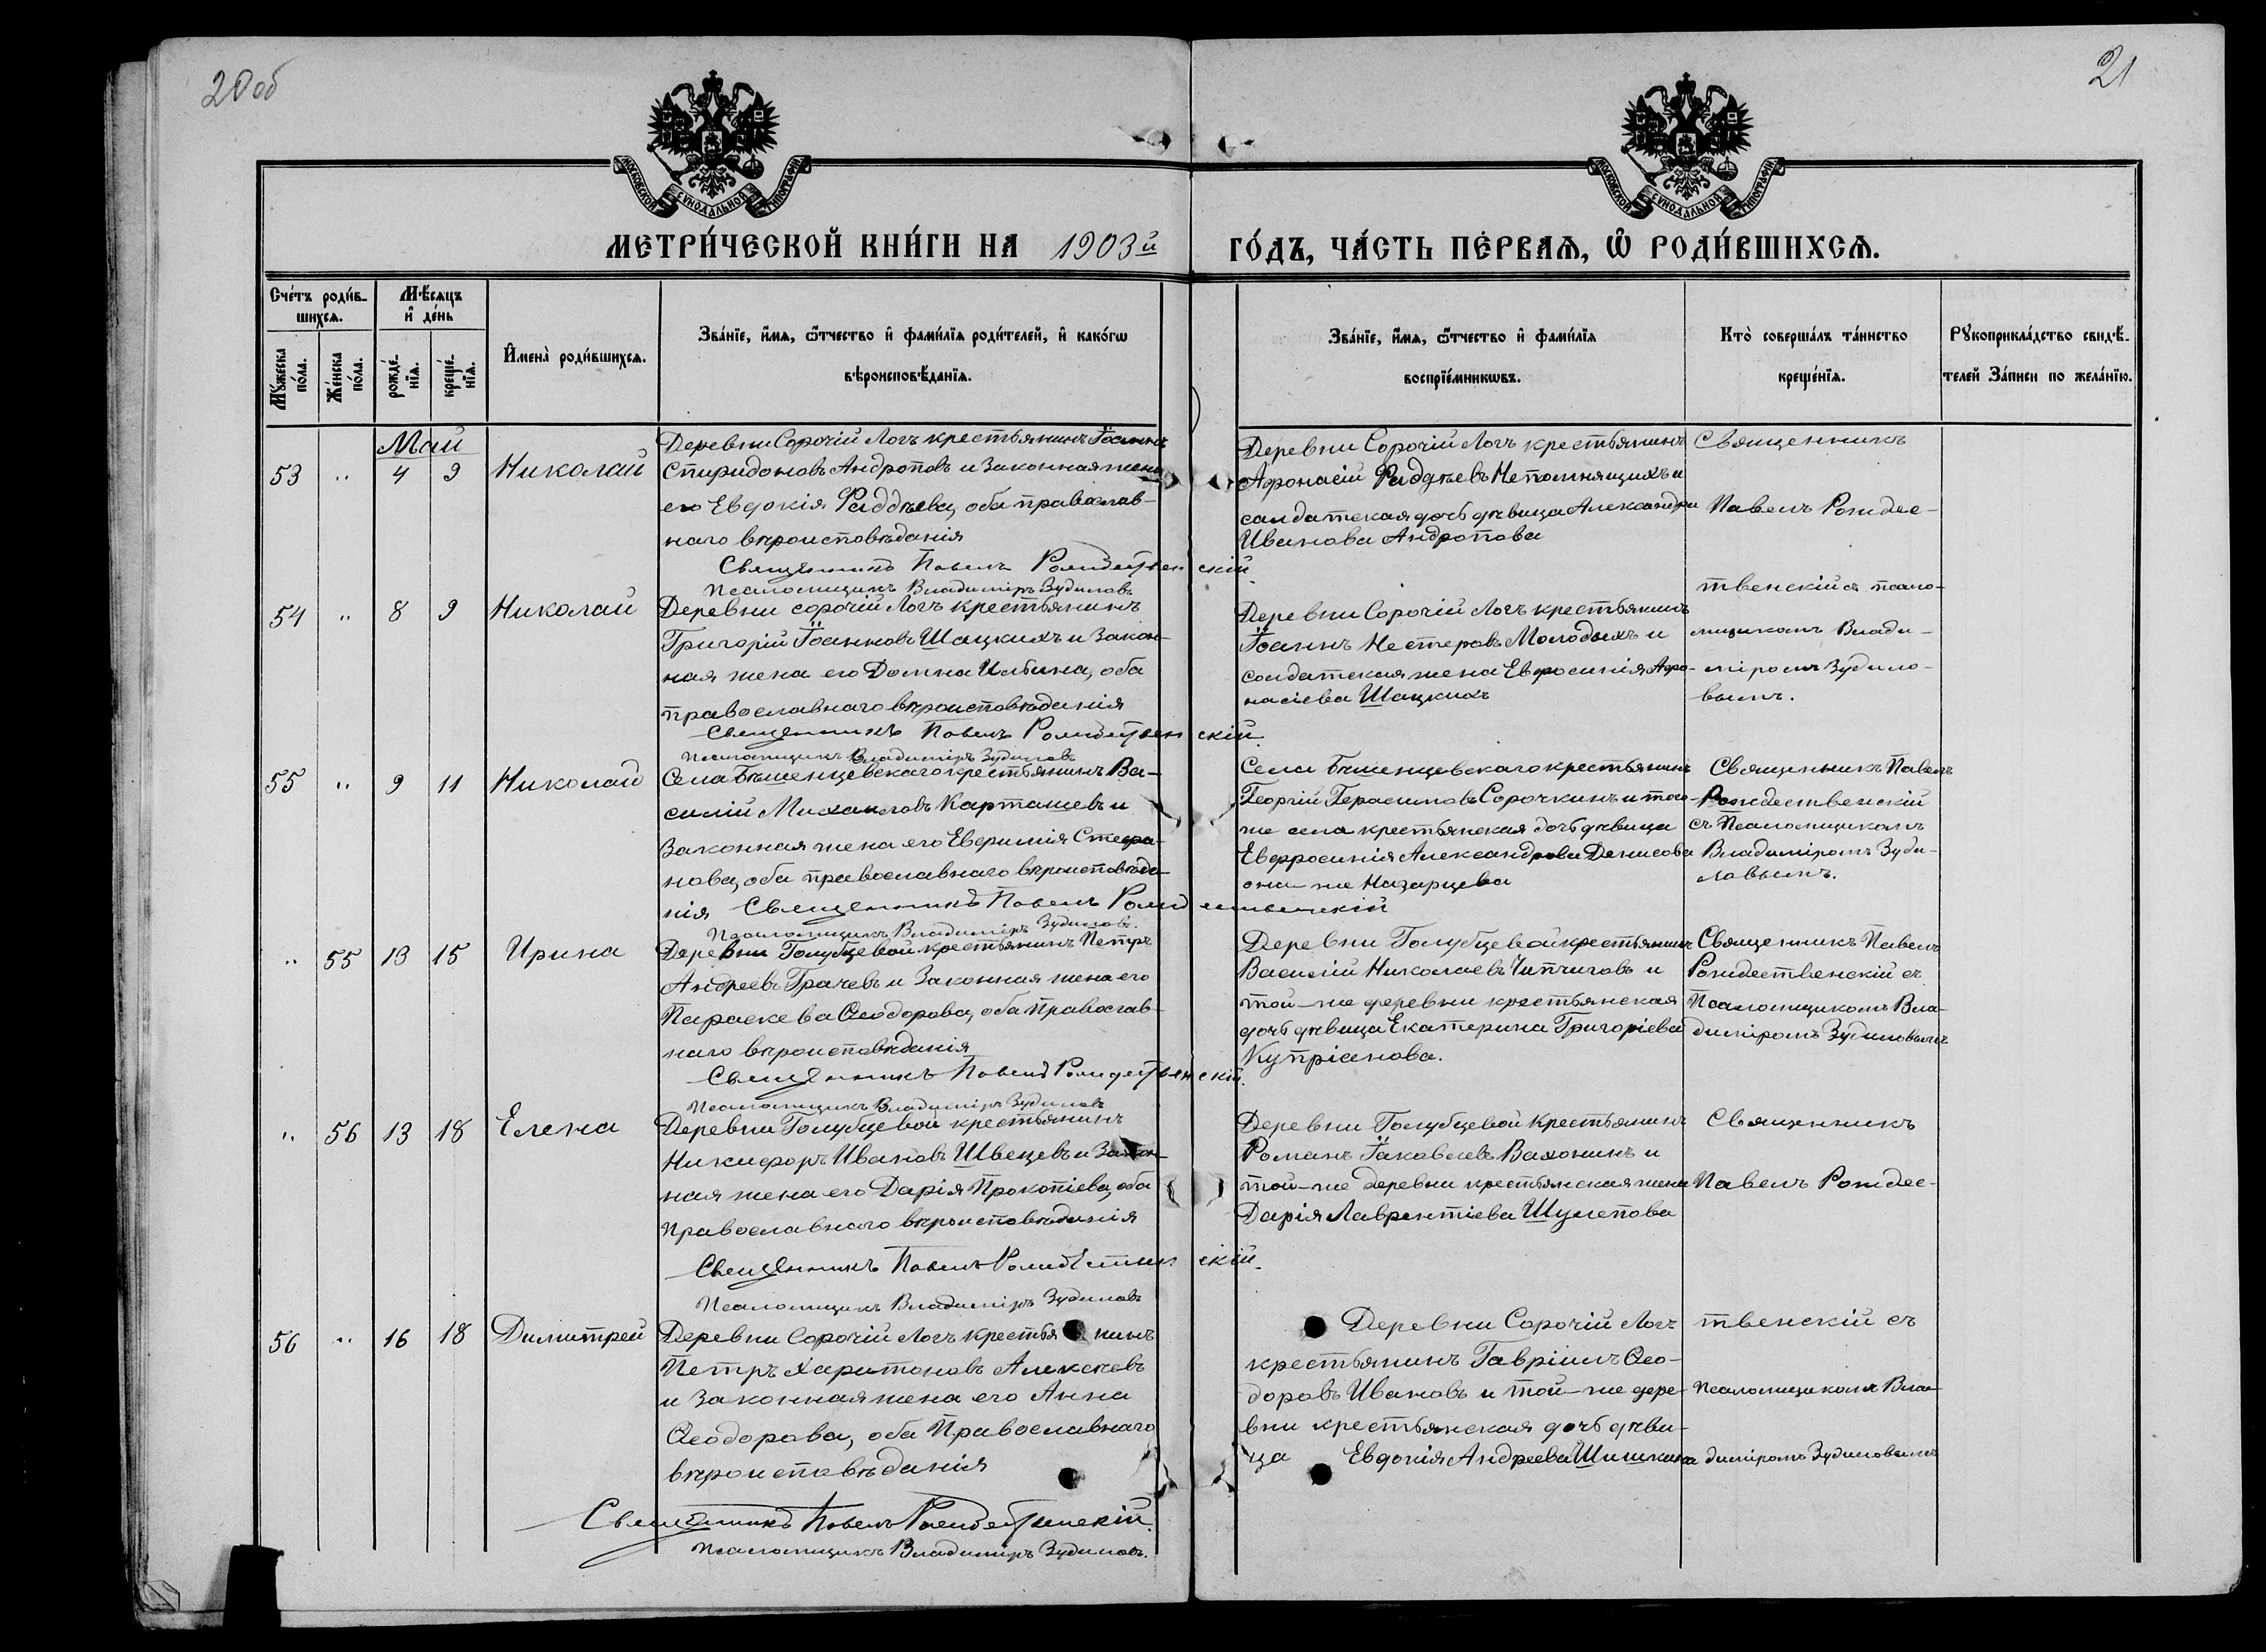 20 об
21
МОСКОВСКОЙ СУНОДАЛЬНОЙ ТИПОГРАФІИ
МОСКОВСКОЙ СУНОДАЛЬНОЙ ТИПОГРАФІИ
МЕТРИ́ЧЕСКОЙ КНИ́ГИ НА 1903й ГО́ДЪ, ЧА́СТЬ ПЕ́РВАѦ, Ѡ҆ РОДИ́ВШИХСѦ.
Сче́тъ роди́в-
шихсѧ.
Мꙋжеска по́ла.
Же́нска по́ла.
Мѣ́сѧцъ
и҆ де́нь
рожде́-
нїѧ.
креще́-
нїѧ.
И҆мена̀ роди́вшихсѧ.
Зва́нїе, и҆́мѧ, ѻ҆́тчество и҆ фами́лїѧ роди́телей, и҆ како́гѡ
вѣроисповѣ́данїѧ.
Зва́нїе, и҆́мѧ, ѻ҆́тчество и҆ фами́лїѧ
воспрїе́мникѡвъ.
Кто̀ соверша́лъ та́инство
креще́нїѧ.
Рꙋкоприкла́дство свидѣ́-
телей За́писи по жела́нїю.
Май
53 " 4 9 Николай
Деревни Сорочій Логъ крестьянинъ Іоаннъ
Спиридоновъ Андроповъ и законная жена
его Евдокія Фаддѣева, оба православ-
наго вѣроисповѣданія
Священникъ Павелъ Рождественскій
Псаломщикъ Владиміръ Зудиловъ
Деревни Сорочій Логъ крестьянинъ
Афонасій Фадѣевъ Непомнящихъ и
салдатская дочь дѣвица Александра
Иванова Андропова
Священникъ
Павелъ Рождес-
твенскій съ псало-
мщикомъ Влади-
міромъ Зудило-
вымъ.
54 " 8 9 Николай
Деревни сорочій Логъ крестьянинъ
Григорій Іоанновъ Шацкихъ и закон-
ная жена его Домна Ильина, оба
православнаго вѣроисповѣданія
Священникъ Павелъ Рождественскій.
Псаломщикъ Владиміръ Зудиловъ
Деревни Сорочій Логъ крестьянинъ
Іоаннъ Нестеровъ Молодыхъ и
солдатская жена Евфросинія Афо-
насіева Шацкихъ
55 " 9 11 Николай
Села Бѣшенцевскаго крестьянинъ Ва-
силій Михаиловъ Карташевъ и
законная жена его Евфимія Стефа-
нова, оба православнаго вѣроисповѣда-
нія Священникъ Павелъ Рождественскій
Псаломщикъ Владиміръ Зудиловъ.
Села Бѣшенцевскаго крестьянинъ
Георгій Герасимовъ Сорочкинъ и того-
же села крестьянская дочь дѣвица
Евфросинія Александрова Денисова
она-же Назарцева
Священникъ Павелъ
Рождественскій
съ Псаломщикомъ
Владиміромъ Зуди-
ловымъ.
" 55 13 15 Ирина
Деревни Голубцевой крестьянинъ Петръ
Андреевъ Грачевъ и законная жена его
Параскева Ѳеодорова, оба Православ-
наго вѣроисповѣданія
Священникъ Павелъ Рождественскій.
Псаломщикъ Владиміръ Зудиловъ
Деревни Голубцевой крестьянинъ
Василій Николаевъ Чипчиговъ и
той-же деревни крестьянская
дочь дѣвица Екатерина Григоріева
Купріанова.
Священникъ Павелъ
Рождественскій съ
Псаломщикомъ Вла-
диміромъ Зудиловымъ
" 56 13 18 Елена
Деревни Голубцевой крестьянинъ
Никифоръ Ивановъ Швецевъ и закон-
ная жена его Дарія Прокопіева, оба
Православнаго вѣроисповѣданія
Священникъ Павелъ Рождественскій.
Псаломщикъ Владиміръ Зудиловъ
Деревни Голубцевой крестьянинъ
Романъ Іаковлевъ Вахонинъ и
той-же деревни крестьянская жена
Дарія Лаврентіева Шулепова
Священникъ
Павелъ Рождес-
твенскій съ
Псаломщикомъ Вла-
диміромъ Зудиловымъ
56 " 16 18 Димитрей
Деревни Сорочій Логъ крестьянинъ
Петръ Харитоновъ Алексѣевъ
и законная жена его Анна
Ѳеодорова, оба Православнаго
вѣроисповѣданія
Священникъ Павелъ Рождественскій.
Псаломщикъ Владиміръ Зудиловъ.
Деревни Сорочій Логъ
крестьянинъ Гавріилъ Ѳео-
доровъ Ивановъ и той-же дере-
вни крестьянская дочь дѣви-
ца Евдокія Андреева Шишкина